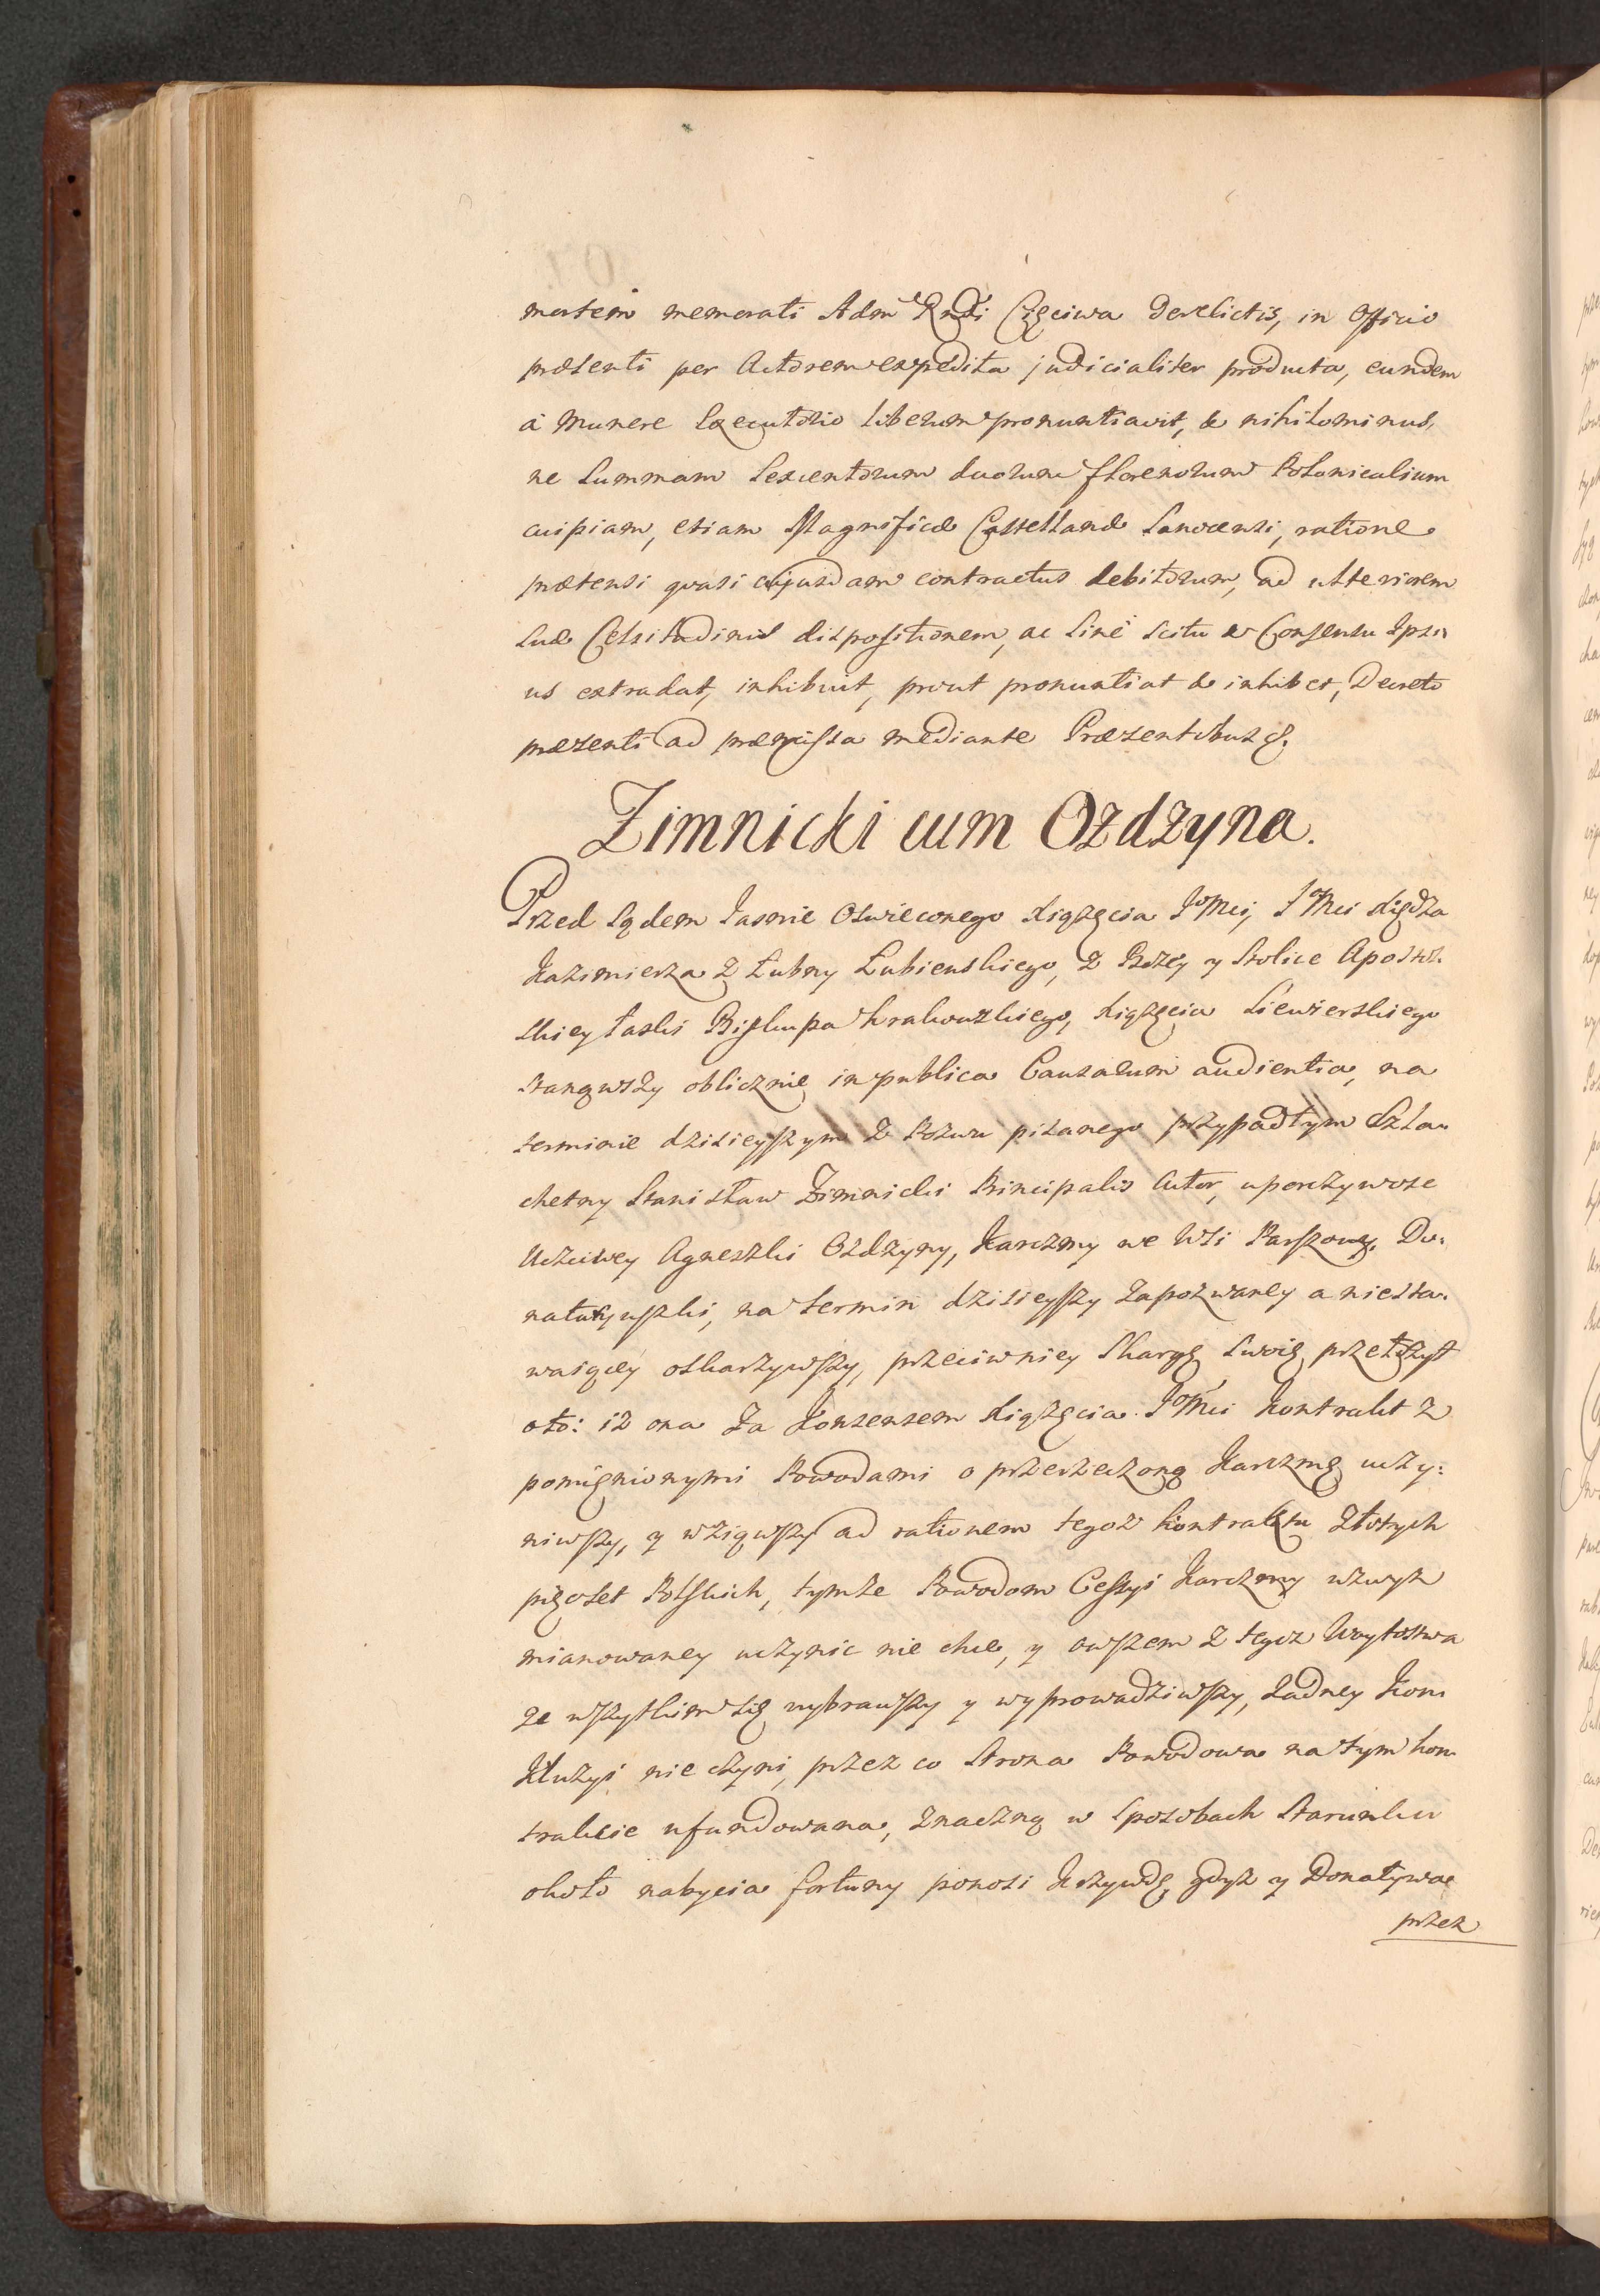 mortem memorati Adm Rndi Cięciwa derelictis, in Officio
præsenti per Actorem expedita judicialiter producta, eundem
à munere Executorio liberum pronuntiavit, & nihilominus,
ne Summam Sexcentorum duorum florenorum Polonicalium
cuipiam, etiam Magnificæ Castellanæ Sanocensi, ratione
prætensi quasi cujusdam contractus debitorum, ad ulteriorem
Suæ Celsitudinis dispositionem, ac Sine Scitu & Consensu Ipsi-
us extradat, inhibuit, prout pronuntiat & inhibet, Decreto
præsenti ad præmissa mediante Præsentibus &.
Zimnicki cum Ozdzyna.
Przed Sądem Jasnie Oswieconego Xiążęcia JoMci, JMci Xiędza
Kazimierza z Łubny Łubienskiego, z Bożey y Stolice Apostol-
skiey łaski Biskupa Krakowskiego, Xiążęcia Siewierskiego
stanąwszy oblicznie in publica Causarum audientia, na
terminie dzisieyszym z Pozwu pisanego przypadłym Szla-
chetny Stanisław Zimnicki Principalis Actor, uporczywose
Uczciwey Agneszki Ozdzyny, Karczmy we Wsi Parszowy, Do-
nataryuszki, na termin dzisieyszy zapozwaney a niesta-
waiącey oskarzywszy, przeciwniey Skargę Swoię przełożył
oto: iz ona za Konsensem Xiążęcia JoMci Kontrakt z
pomięnionymi Powodami o przerzeczoną Karczmę uczy-
niwszy, y wziąwszy ad rationem tegoz Kontraktu Złotych
pięcset Polskich, tymze Powodom Cessyi Karczmy wzwyz
mianowaney uczynic nie chce, y owszem z tegoz Woytostwa
ze wszytkim się wybrawszy y wyprowadziwszy, zadney Kon-
kluzyi nie czyni, przez co Strona Powodowa na tym kon-
trakcie ufundowana, znaczną w Sposobach Starunku
około nabycia fortuny ponosi Krzywdę, gdyz y Donatywae
przez